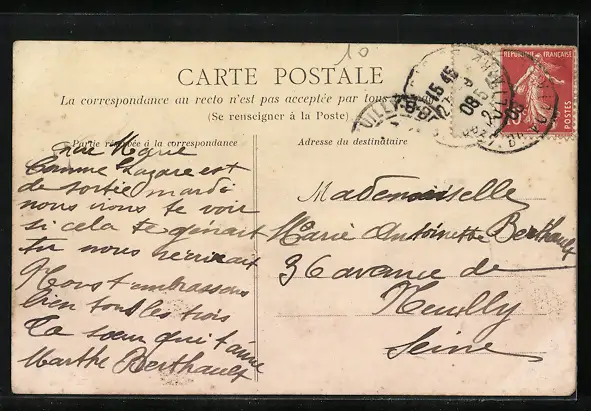 10
CARTE POSTALE
La correspondance au recto n'est pas acceptée par tous
(Se renseigner à la Poste)
Partie réservée à la correspondance
Adresse du destinataire
REPUBLIQUE FRANÇAISE
POSTES
15 45
08
Marie
Comme Lazare est
de sortie mardi
nous irons te voir
si cela te gênait
tu nous écrirait
Nous t'embrassons
bien tous les trois
Ta sœur qui t'aime
Marthe Berthault
Mademoiselle
Marie Antoinette Berthault
36 avenue de
Neuilly
Seine